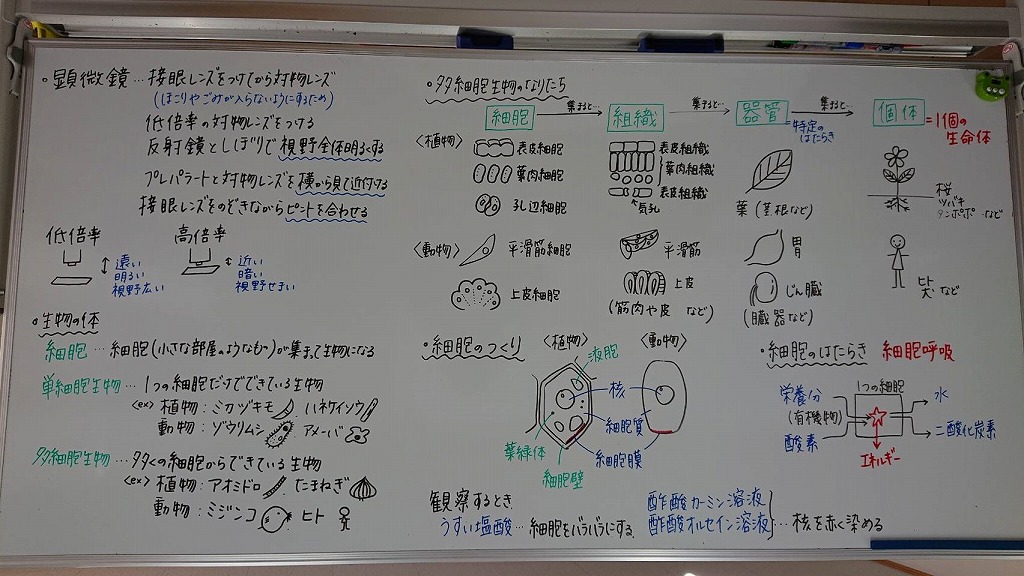 ・顕微鏡…接眼レンズをつけてから対物レンズ
(ほこりやごみが入らないようにするため)
低倍率の対物レンズをつける
反射鏡としぼりで視野全体明るくする
プレパラートと対物レンズを横から見て近付ける
接眼レンズをのぞきながらピントを合わせる
低倍率
遠い
明るい
視野広い
高倍率
近い
暗い
視野せまい
・生物の体
細胞…細胞(小さな部屋のようなもの)が集まって生物になる
単細胞生物…1つの細胞だけでできている生物
<ex> 植物:ミカヅキモ ハネケイソウ
動物:ゾウリムシ アメーバ
多細胞生物…多くの細胞からできている生物
<ex> 植物:アオミドロ たまねぎ
動物:ミジンコ ヒト
・多細胞生物のなりたち
細胞 集まると… 組織 集まると… 器官 集まると… 個体 =1個の生命体
=特定のはたらき
<植物>
表皮細胞
葉肉細胞
孔辺細胞
表皮組織
葉肉組織
表皮組織
気孔
葉(茎根など)
桜
ツバキ
タンポポ など
<動物>
平滑筋細胞
上皮細胞
平滑筋
上皮
(筋肉や皮 など)
胃
じん臓
(臓器など)
ヒト
犬 など
・細胞のつくり
<植物>
<動物>
液胞
核
細胞質
細胞膜
葉緑体
細胞壁
観察するとき
うすい塩酸…細胞をバラバラにする
酢酸カーミン溶液
酢酸オルセイン溶液
…核を赤く染める
・細胞のはたらき 細胞呼吸
栄養分
(有機物)
酸素
1つの細胞
水
二酸化炭素
エネルギー